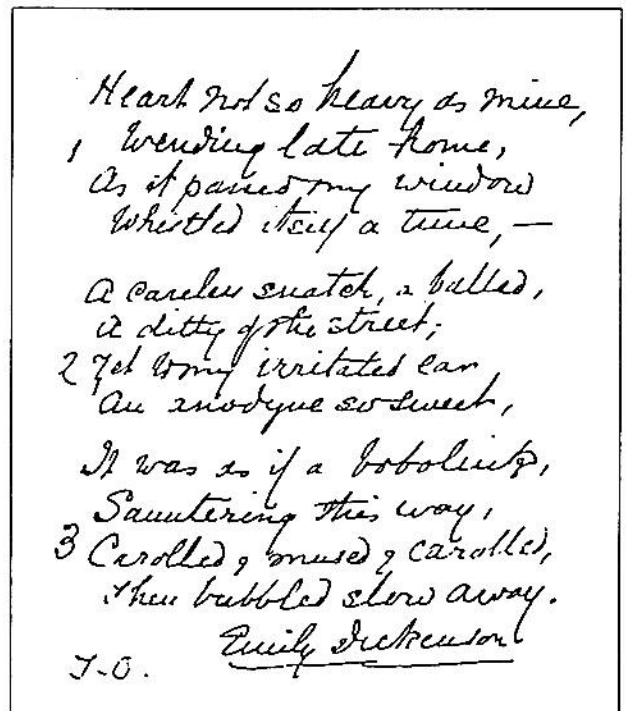 Heart not so heavy as mine,
1 Wending late home,
As it passed my window
Whistled itself a tune, —
A careless snatch, a ballad,
A ditty of the street;
2 Yet to my irritated ear
An anodyne so sweet,
It was as if a bobolink,
Sauntering this way,
3 Carolled, & mused & carolled,
Then bubbled slow away.
Emily Dickenson
T-O.